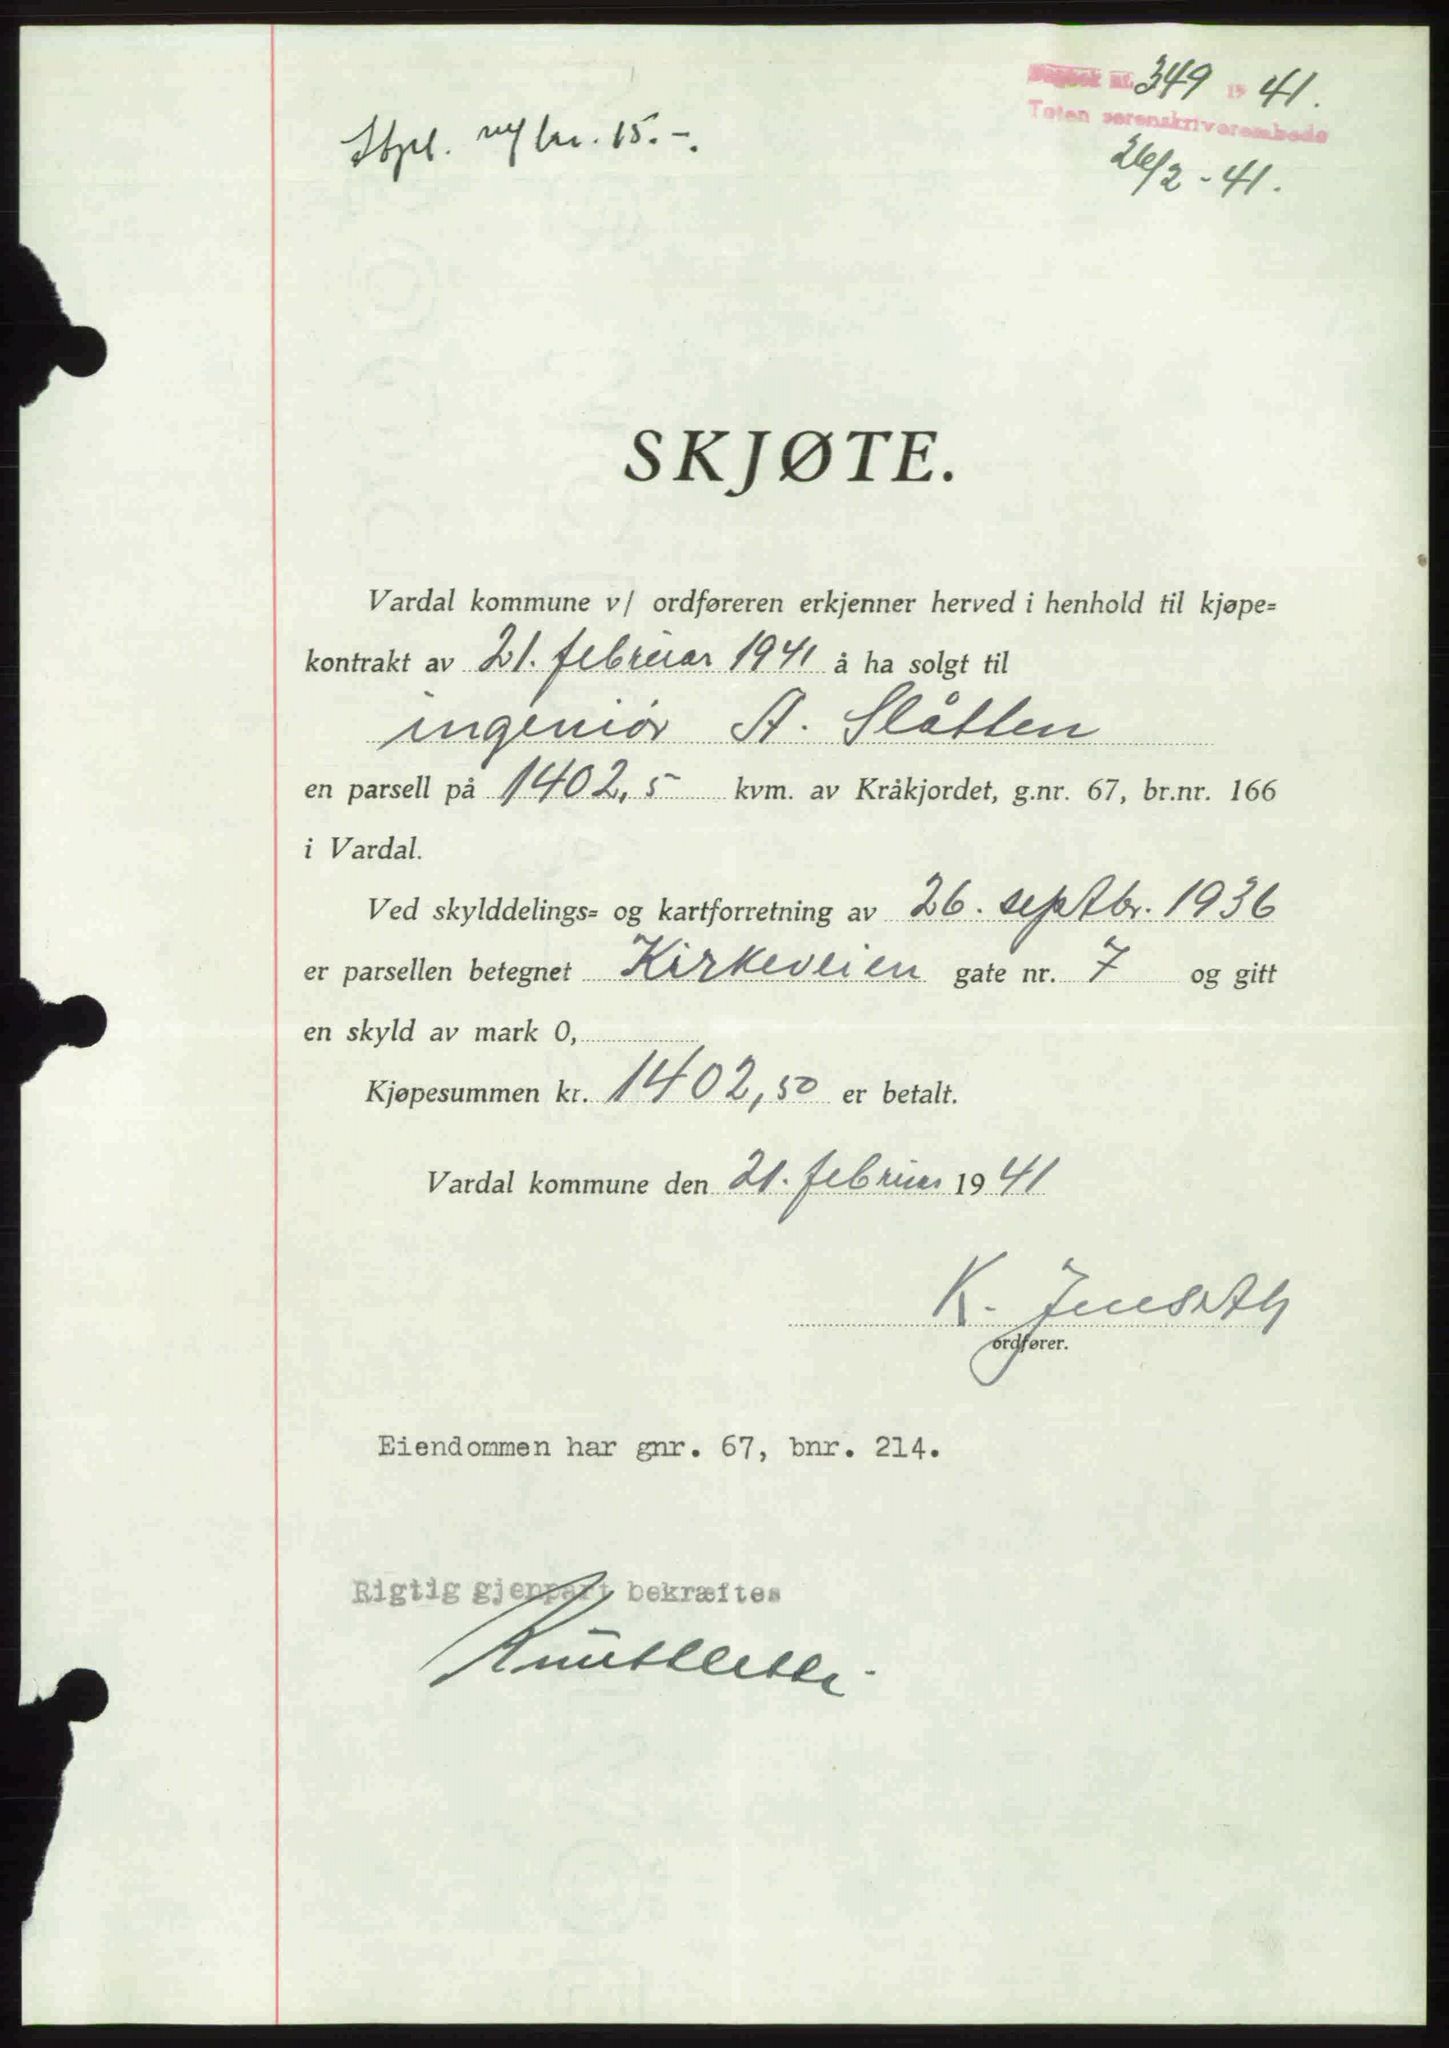 Dagbok nr. 349 19 41.
Toten sorenskriverembede
26/2 - 41.
Stpl. m/ kr. 15.-.
SKJØTE.
Vardal kommune v/ ordføreren erkjenner herved i henhold til kjøpe=
kontrakt av 21. februar 1941 å ha solgt til
ingeniør A. Slåtten
en parsell på 1402,5 kvm. av Kråkjordet, g.nr. 67, br.nr. 166
i Vardal.
Ved skylddelings= og kartforretning av 26. septbr. 1936
er parsellen betegnet Kirkeveien gate nr. 7 og gitt
en skyld av mark 0,
Kjøpesummen kr. 1402,50 er betalt.
Vardal kommune den 21. februar 19 41
K.
ordfører.
Eiendommen har gnr. 67, bnr. 214.
Rigtig gjenpart bekræftes